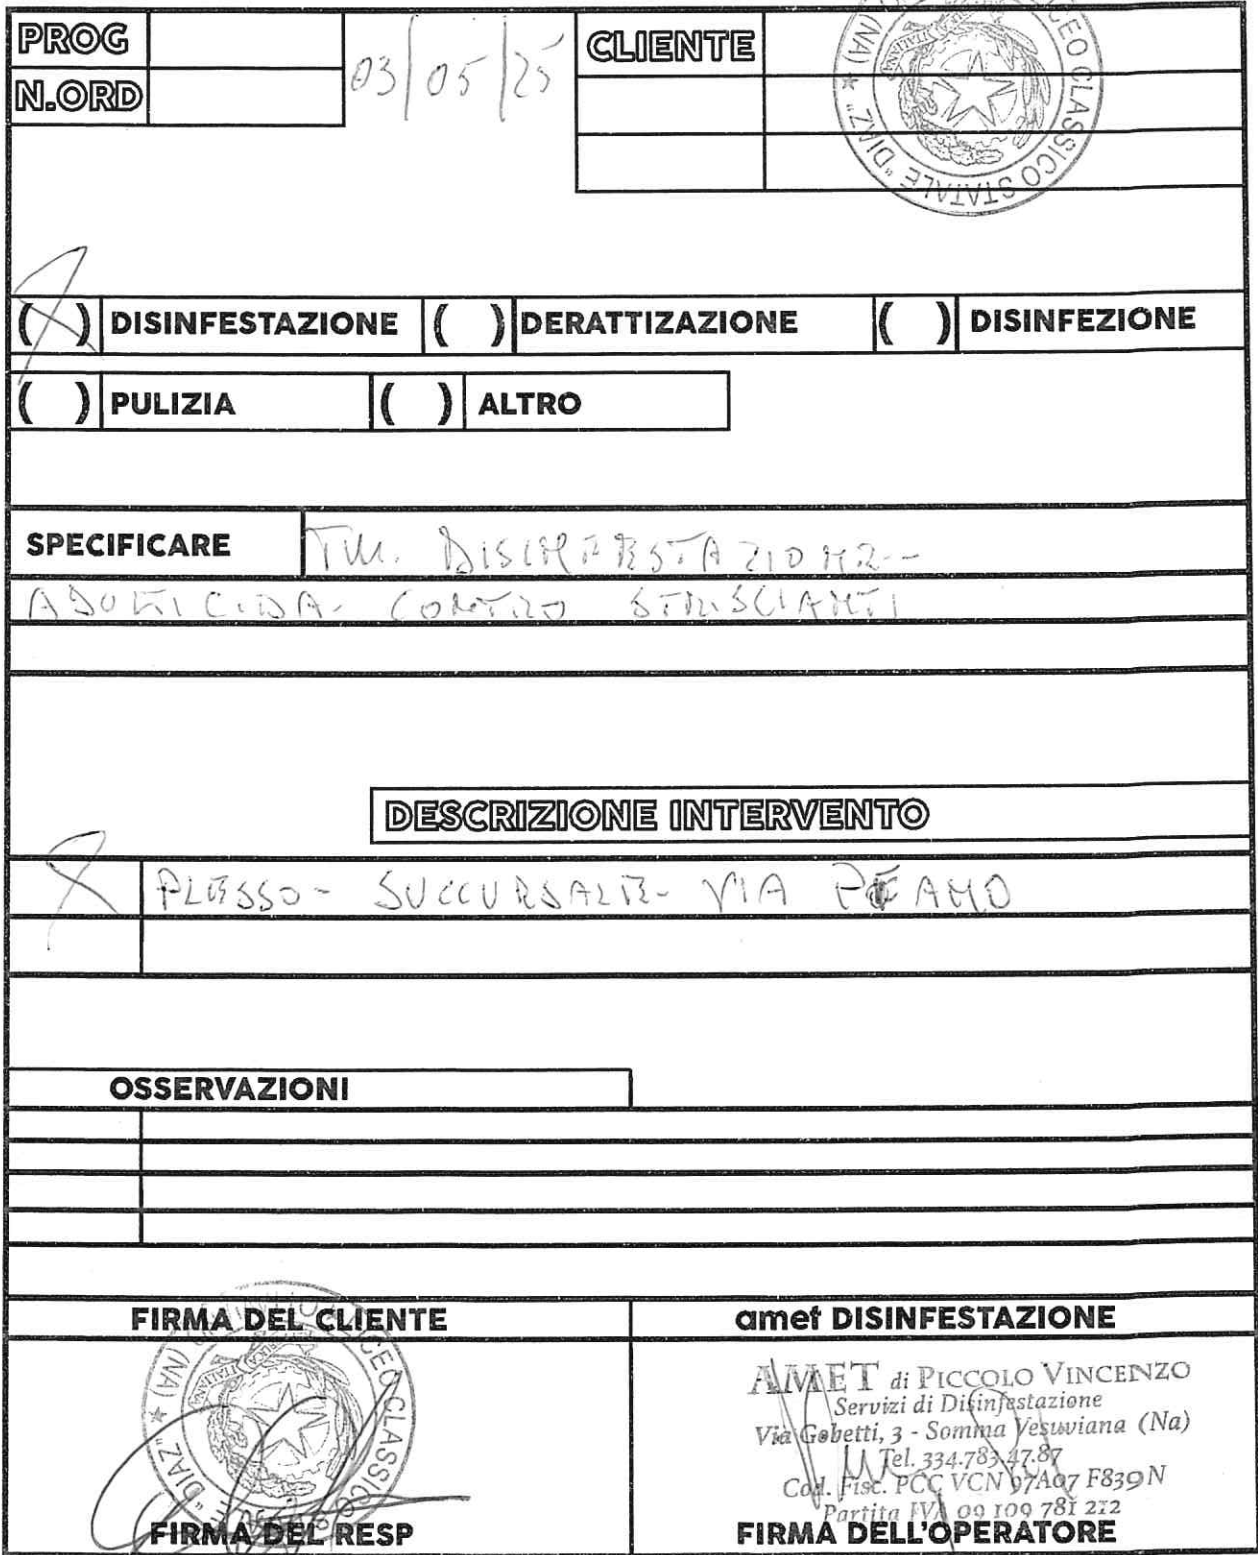 PROG
N.ORD
03/05/25
CLIENTE
CEO CLASSICO STATALE "DIAZ" * (NA)
( ) DISINFESTAZIONE ( ) DERATTIZAZIONE ( ) DISINFEZIONE
( ) PULIZIA ( ) ALTRO
SPECIFICARE
DISINFESTAZIONE--
ADULTICIDA- CONTRO STRISCIANTI
DESCRIZIONE INTERVENTO
PLESSO- SUCCURSALE- VIA
OSSERVAZIONI
FIRMA DEL CLIENTE
amet DISINFESTAZIONE
CEO CLASSICO "DIAZ" * (NA)
AMET di PICCOLO VINCENZO
Servizi di Disinfestazione
Via Gobetti, 3 - Somma Vesuviana (Na)
Tel. 334.783.47.87
Cod. Fisc. PCC VCN 97A07 F839N
Partita IVA 09 109 781 212
FIRMA DEL RESP
FIRMA DELL'OPERATORE